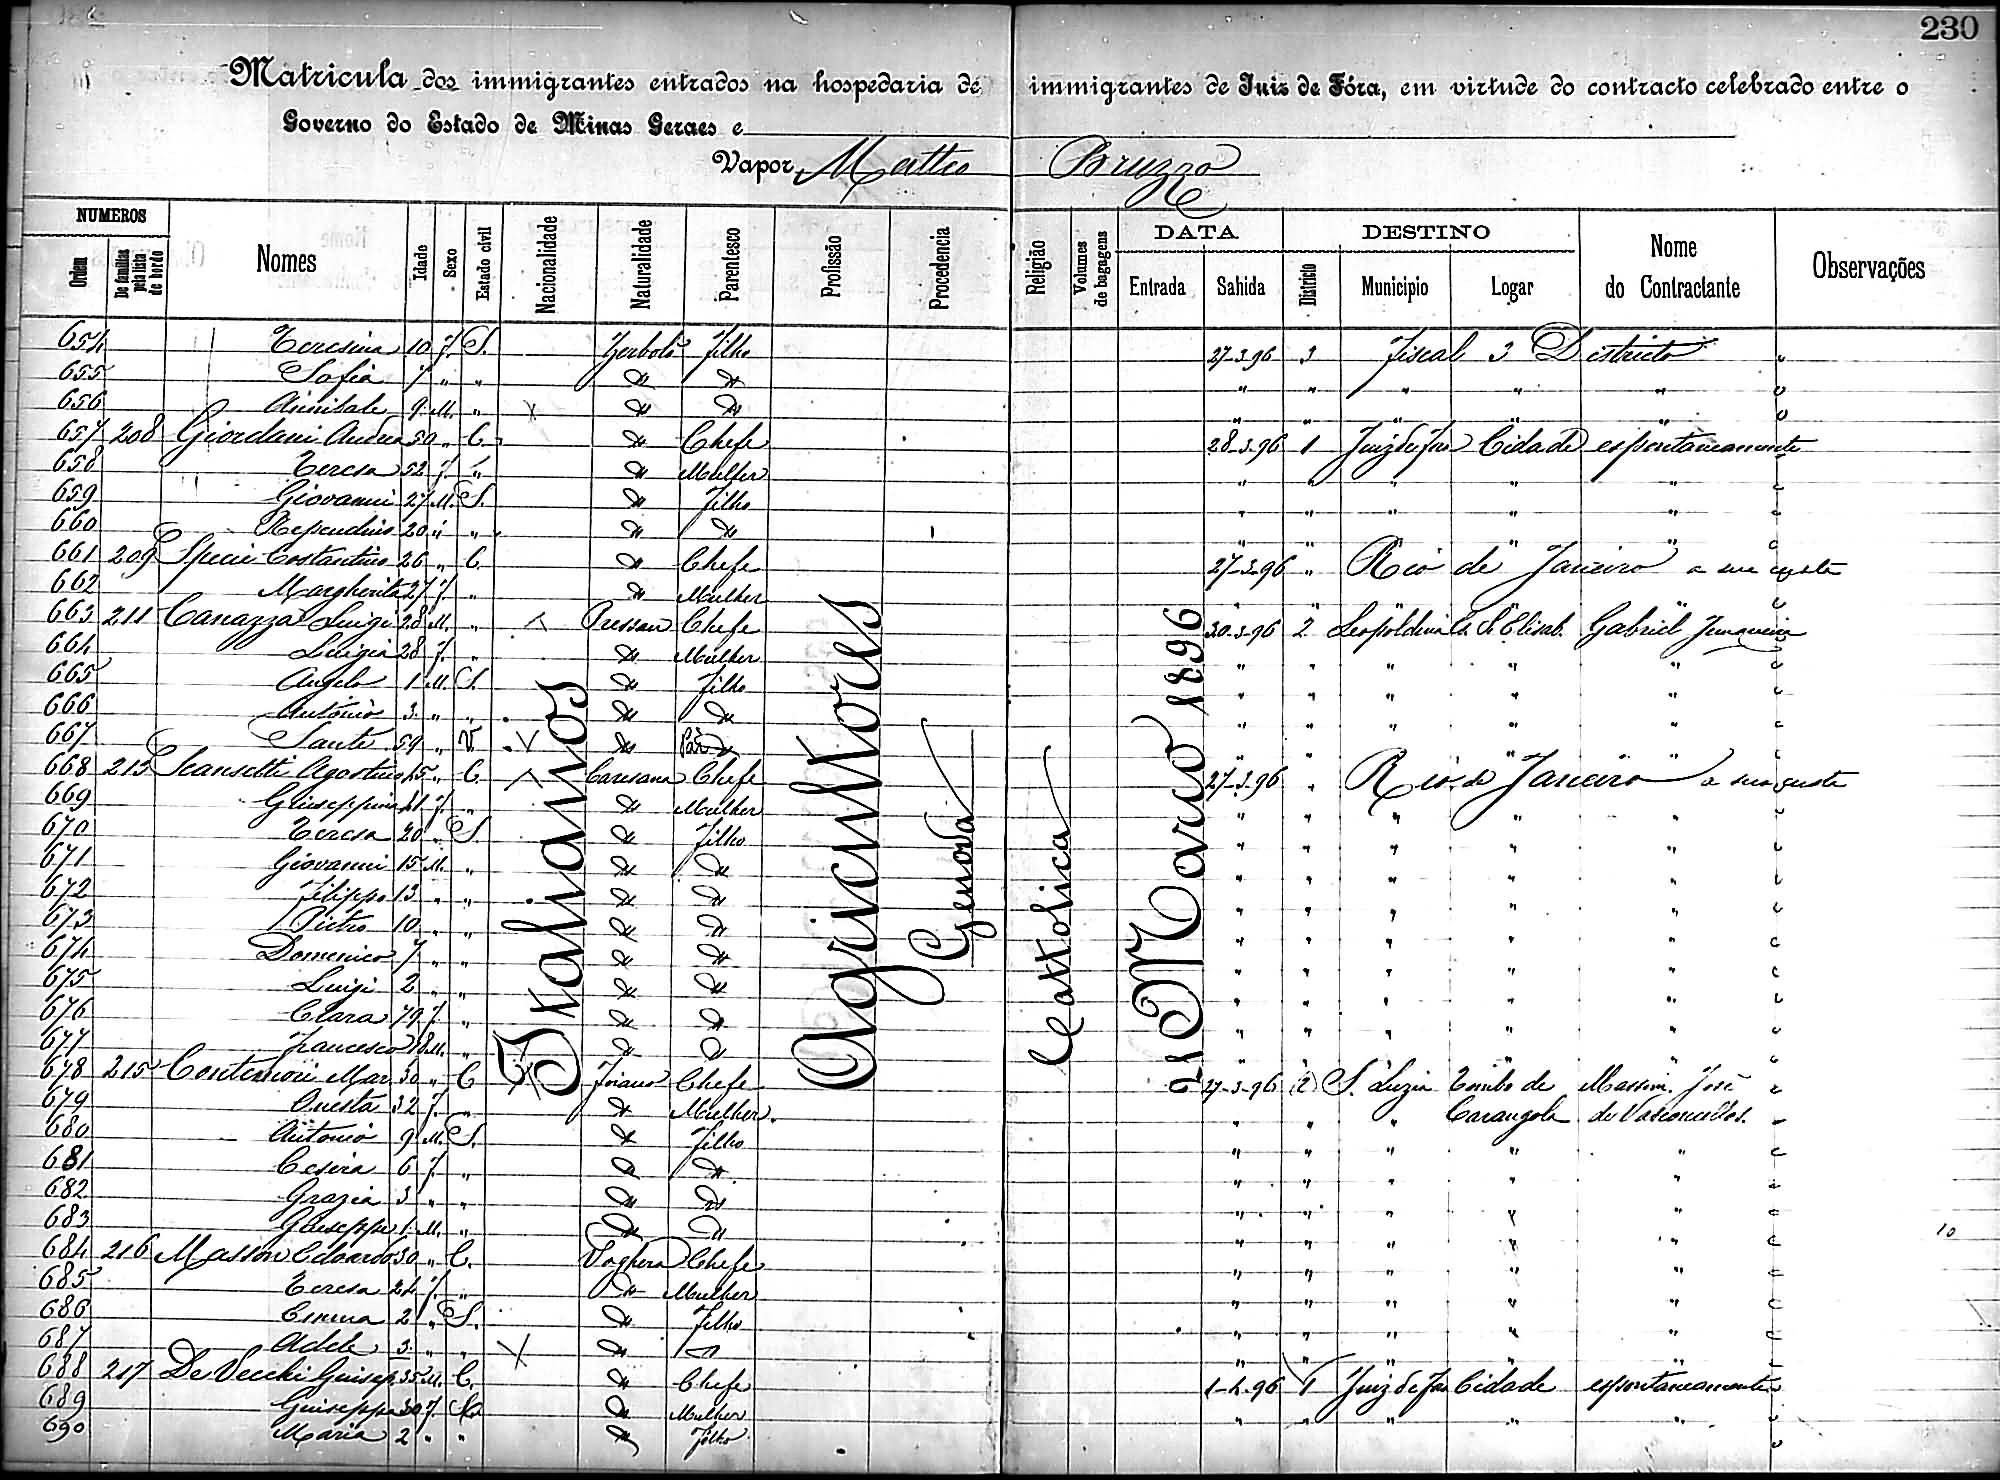 230
Matricula dos immigrantes entrados na hospedaria de immigrantes de Juiz de Fóra, em virtude do contracto celebrado entre o
Governo do Estado de Minas Geraes e
Vapor Matteo Bruzzo
NUMEROS DATA DESTINO
Ordem De familias pela lista de bordo Nomes Idade Sexo Estado civil Nacionalidade Naturalidade Parentesco Profissão Procedencia Religião Volumes de bagagens Entrada Sahida Districto Municipio Logar Nome do Contractante Observações
Italianos Agricultores Genova Cattolica Março 1896
654 Teresina 10 F. S. Zerbolò Filho 27-3-96 3 Fiscal 3 Districto "
655 Sofia 7 " " " " " " " " "
656 Annibale 9 M. " " " " " " " "
657 208 Giordani Andrea 50 " C. " Chefe 28-3-96 1 Juiz de Fora Cidade espontaneamente
658 Teresa 52 F. " " Mulher " " " " "
659 Giovanni 27 M. S. " Filho " " " " "
660 20 " " " " " " " " "
661 209 Costantino 26 " C. " Chefe 27-3-96 " Rio de Janeiro a sua custa
662 Margherita 27 F. " " Mulher
663 211 Canazza Luigi 28 M. " Chefe 30-3-96 2 Leopoldina Gabriel
664 Luigia 28 F. " " Mulher " " " " "
665 Angelo 1 M. S. " Filho " " " " "
666 Antonio 3 " " " " " " " " "
667 Sante 59 " V. " Pai " " " " "
668 213 Agostino 45 " C. Chefe 27-3-96 " Rio de Janeiro a sua custa
669 Giuseppina 41 F. " " Mulher " " " " "
670 Teresa 20 " S. " Filho " " " " "
671 Giovanni 15 M. " " " " " " " "
672 Filippo 13 " " " " " " " " "
673 Pietro 10 " " " " " " " " "
674 Domenico 7 " " " " " " " " "
675 Luigi 2 " " " " " " " " "
676 Clara 79 F. " " " " " " " "
677 Francesco 18 M. " " " " " " " "
678 215 Mar. 30 " C. Chefe 27-3-96 2 S. Luzia Tombo de Massim. José
679 Onesta 32 F. " " Mulher " " " Carangola de Vasconcellos.
680 Antonio 9 M. S. " Filho " " " " "
681 Cesira 6 F. " " " " " " " "
682 Grazia 3 " " " " " " " " "
683 Giuseppe 1 M. " " " " " " " " 10
684 216 Masson Edoardo 30 " C. Voghera Chefe " " " " "
685 Teresa 24 F. " " Mulher " " " " "
686 Emma 2 " S. " Filho " " " " "
687 Adele 3 " " " " " " " " "
688 217 De Vecchi Giusep. 35 M. C. " Chefe 1-4-96 1 Juiz de Fora Cidade espontaneamente
689 Giuseppa 30 F. " Mulher " " " " "
690 Maria 2 " " " Filho